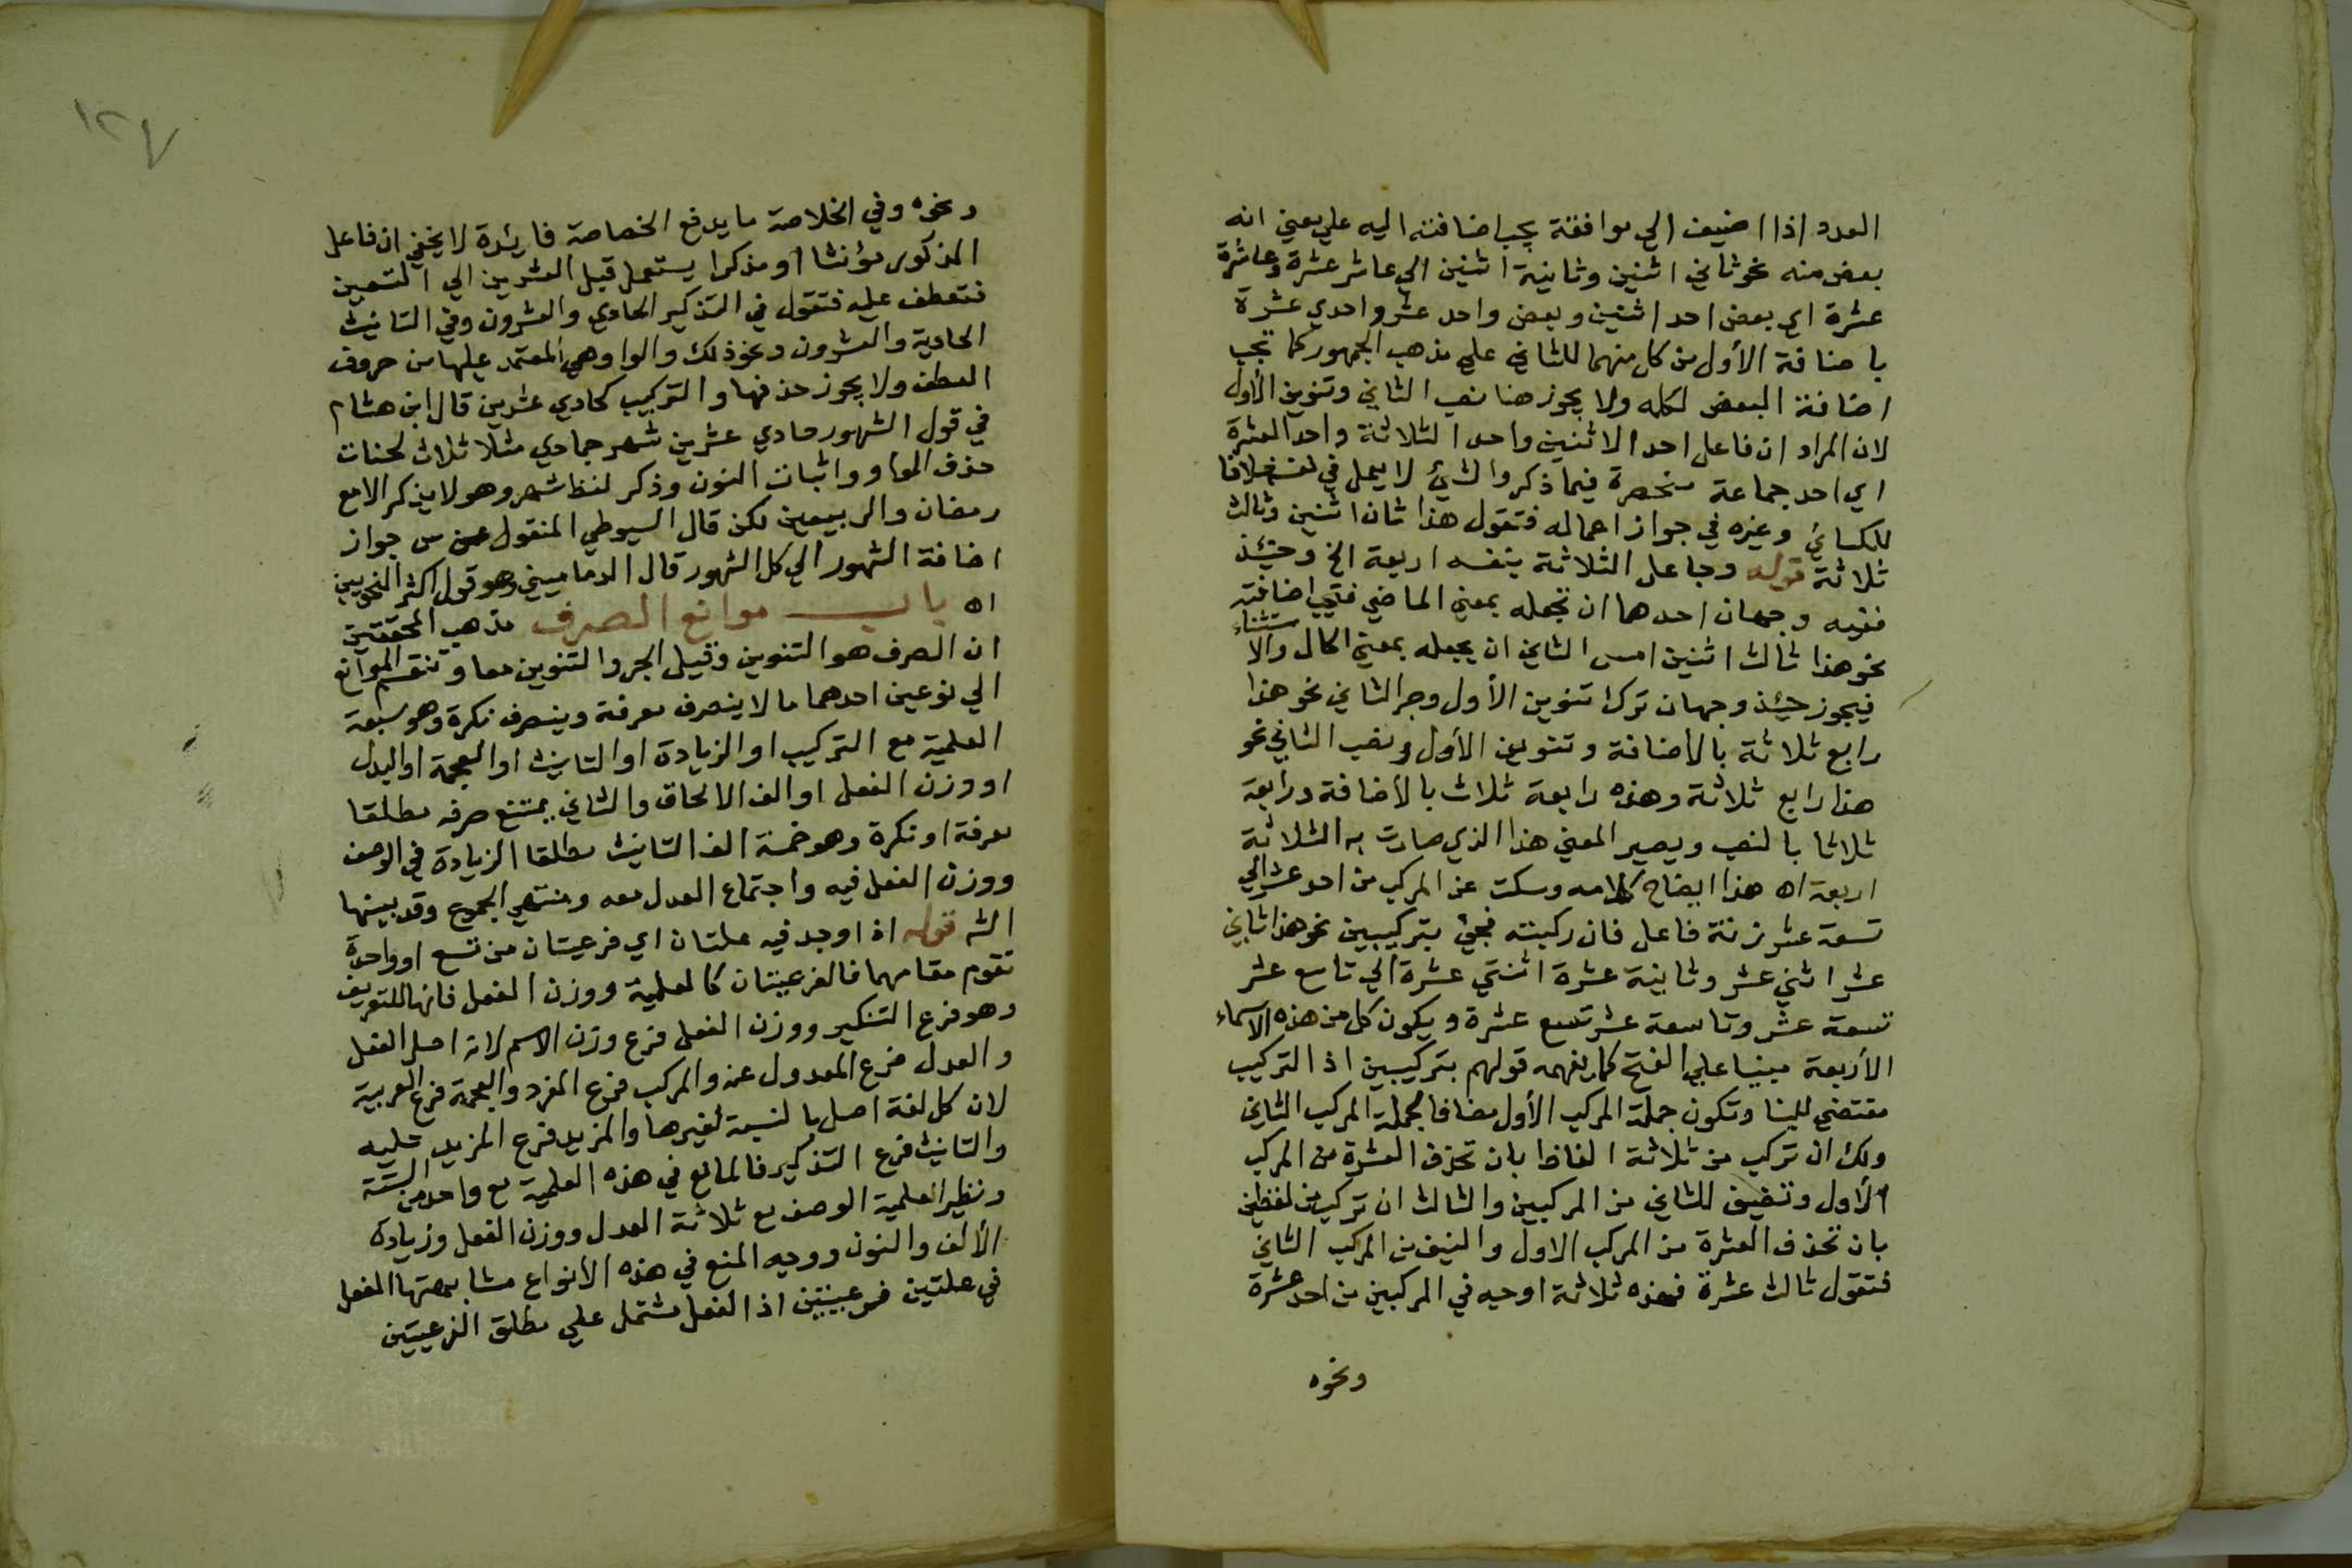 العدد اذا اضيف الي موافقة يجب اضافته اليه علي معني انه
بعض منه نحو ثاني اثنين وثانية اثنين الي عاشر عشرة وعاشرة
عشرة اي بعض احد اثنين وبعض واحد عشر واحدي عشرة
باضافة الأول من كل منهما للثاني علي مذهب الجمهور كما تجب
اضافة البعض لكله ولا يجوز هنا نصب الثاني وتنوين الأول
لان المراد ان فاعل احد الاثنين واحد الثلاثة واحد العشرة
اي احد جماعة منحصرة فيما ذكر والشئ لا يعمل في نفسه خلافا
للكسائي وغيره في جواز اعماله فتقول هذا ثان اثنين وثالث
ثلاثة قوله وجاعل الثلاثة بنفسه اربعة الخ وحينئذ
ففيه وجهان احدهما ان تجعله بمعني الماضي فتجب اضافته
نحو هذا ثالث اثنين امس الثاني ان يجعله بمعني الحال والاستثناء
فيجوز حينئذ وجهان ترك تنوين الأول وجر الثاني نحو هذا
رابع ثلاثة بالأضافة وتنوين الأول ونصب الثاني نحو
هذا رابع ثلاثة وهذه رابعة ثلاث بالأضافة ورابعة
ثلاثا بالنصب ويصير المعني هذا الذي صارت به الثلاثة
اربعة اه هذا ايضاح كلامه وسكت عن المركب من احد عشر الي
تسعة عشر زنة فاعل فان ركبته فجئ بتركيبين نحو هذا ثاني
عشر اثني عشر وثانية عشرة اثنتي عشرة الي تاسع عشر
تسعة عشر وتاسعة عشر تسع عشرة ويكون كل من هذه الاسماء
الأربعة مبنيا علي الفتح كما يفهمه قولهم بتركيبين اذ التركيب
مقتضي للبنا وتكون جملة المركب الأول مضافا لجملة المركب الثاني
ولك ان تركب من ثلاثة الفاظ بان تحذف العشرة من المركب
الأول وتضيف للثاني من المركبين والثالث ان تركب من لفظين
بان تحذف العشرة من المركب الاول والنيف من المركب الثاني
فتقول ثالث عشرة فهذه ثلاثة اوجه في المركبين من احد عشرة
ونحوه
١٢٧
ونحوه وفي الخلاصة ما يدفع الخصاصة فايدة لا يخفي ان فاعل
المذكور مؤنثا او مذكرا يستعمل قبل العشرين الي التسعين
فتعطف عليه فتقول في التذكير الحادي والعشرون وفي التانيث
الحادية والعشرون ونحو ذلك والواو هي المعتمد عليها من حروف
العطف ولا يجوز حذفها والتركيب كحادي عشرين قال ابن هشام
في قول الشهور حادي عشرين شهر جمادي مثلا ثلاث لحنات
حذف الواو واثبات النون وذكر لفظ شهر وهو لا يذكر الا مع
رمضان والربيعين لكن قال السيوطي المنقول عن س جواز
اضافة الشهور الي كل الشهور قال الدماميني وهو قول اكثر النحويين
اه باب موانع الصرف مذهب المحققين
ان الصرف هو التنوين وقيل الجر والتنوين معا وتنقسم الموانع
الي نوعين احدهما ما لا ينصرف معرفة وينصرف نكرة وهو سبعة
العلمية مع التركيب او الزيادة او التانيث او العجمة او العدل
او وزن الفعل او الف الالحاق والثاني يمتنع صرفه مطلقا
معرفة او نكرة وهو خمسة الف التانيث مطلقا الزيادة في الوصف
ووزن الفعل فيه واجتماع العدل معه ومنتهي الجموع وقد بينها
الش قوله اذا وجد فيه علتان اي فرعيتان من تسع او واحدة
تقوم مقامهما فالفرعيتان كالعلمية ووزن الفعل فانها للتعريف
وهو فرع التنكير ووزن الفعل فرع وزن الاسم لانه اصل الفعل
والعدل فرع المعدول عنه والمركب فرع المفرد والعجمة فرع العربية
لان كل لغة اصل بالنسبة لغيرها والمزيد فرع المزيد عليه
والتانيث فرع التذكير فالمانع في هذه العلمية مع واحد من الستة
ونظير العلمية الوصف مع ثلاثة العدل ووزن الفعل وزيادة
الألف والنون ووجه المنع في هذه الأنواع مشابهتها الفعل
في علتين فرعيتين اذ الفعل مشتمل علي مطلق الفرعيتين